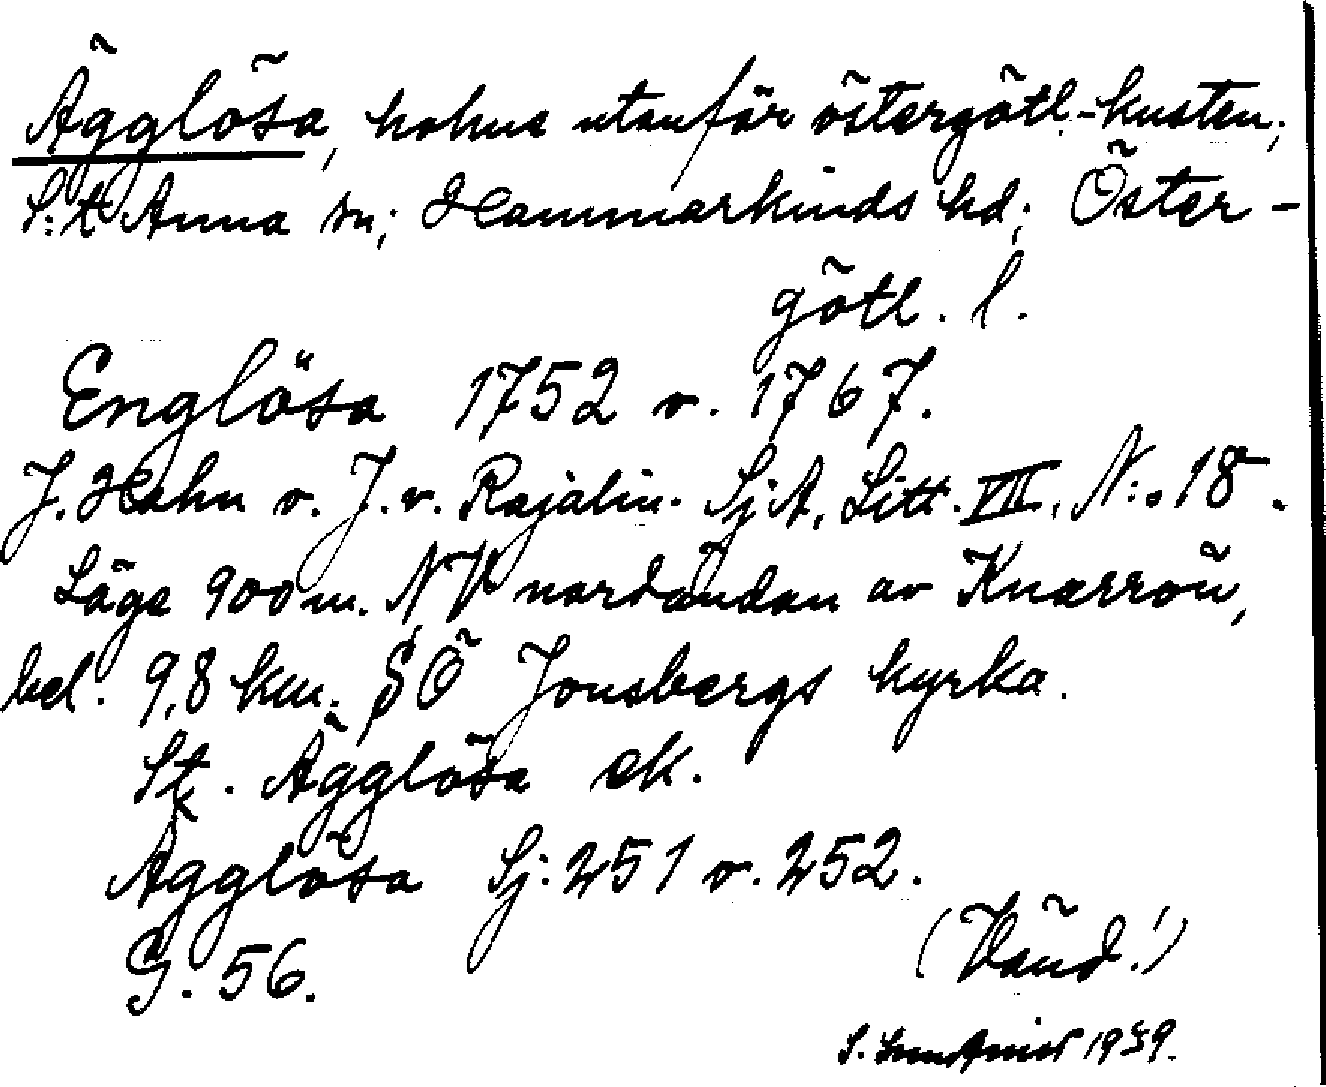 Ägglösa, holme utanför östergötl.-kusten;
S:t Anna sn; Hammarkinds hd; Öster-
götl. l.
Englösa 1752 o. 1767.
J. Hahn o. J. v. Rajalin. Sj.A, Litt. VIII, N:o 18.
Läge 900 m. NV nordändan av Knarrön,
bel. 9,8 km. SÖ Jonsbergs kyrka.
St. Ägglösa ek.
Ägglösa Sj. 251 o. 252.
G. 56.
(Vänd!)
S. 1939.